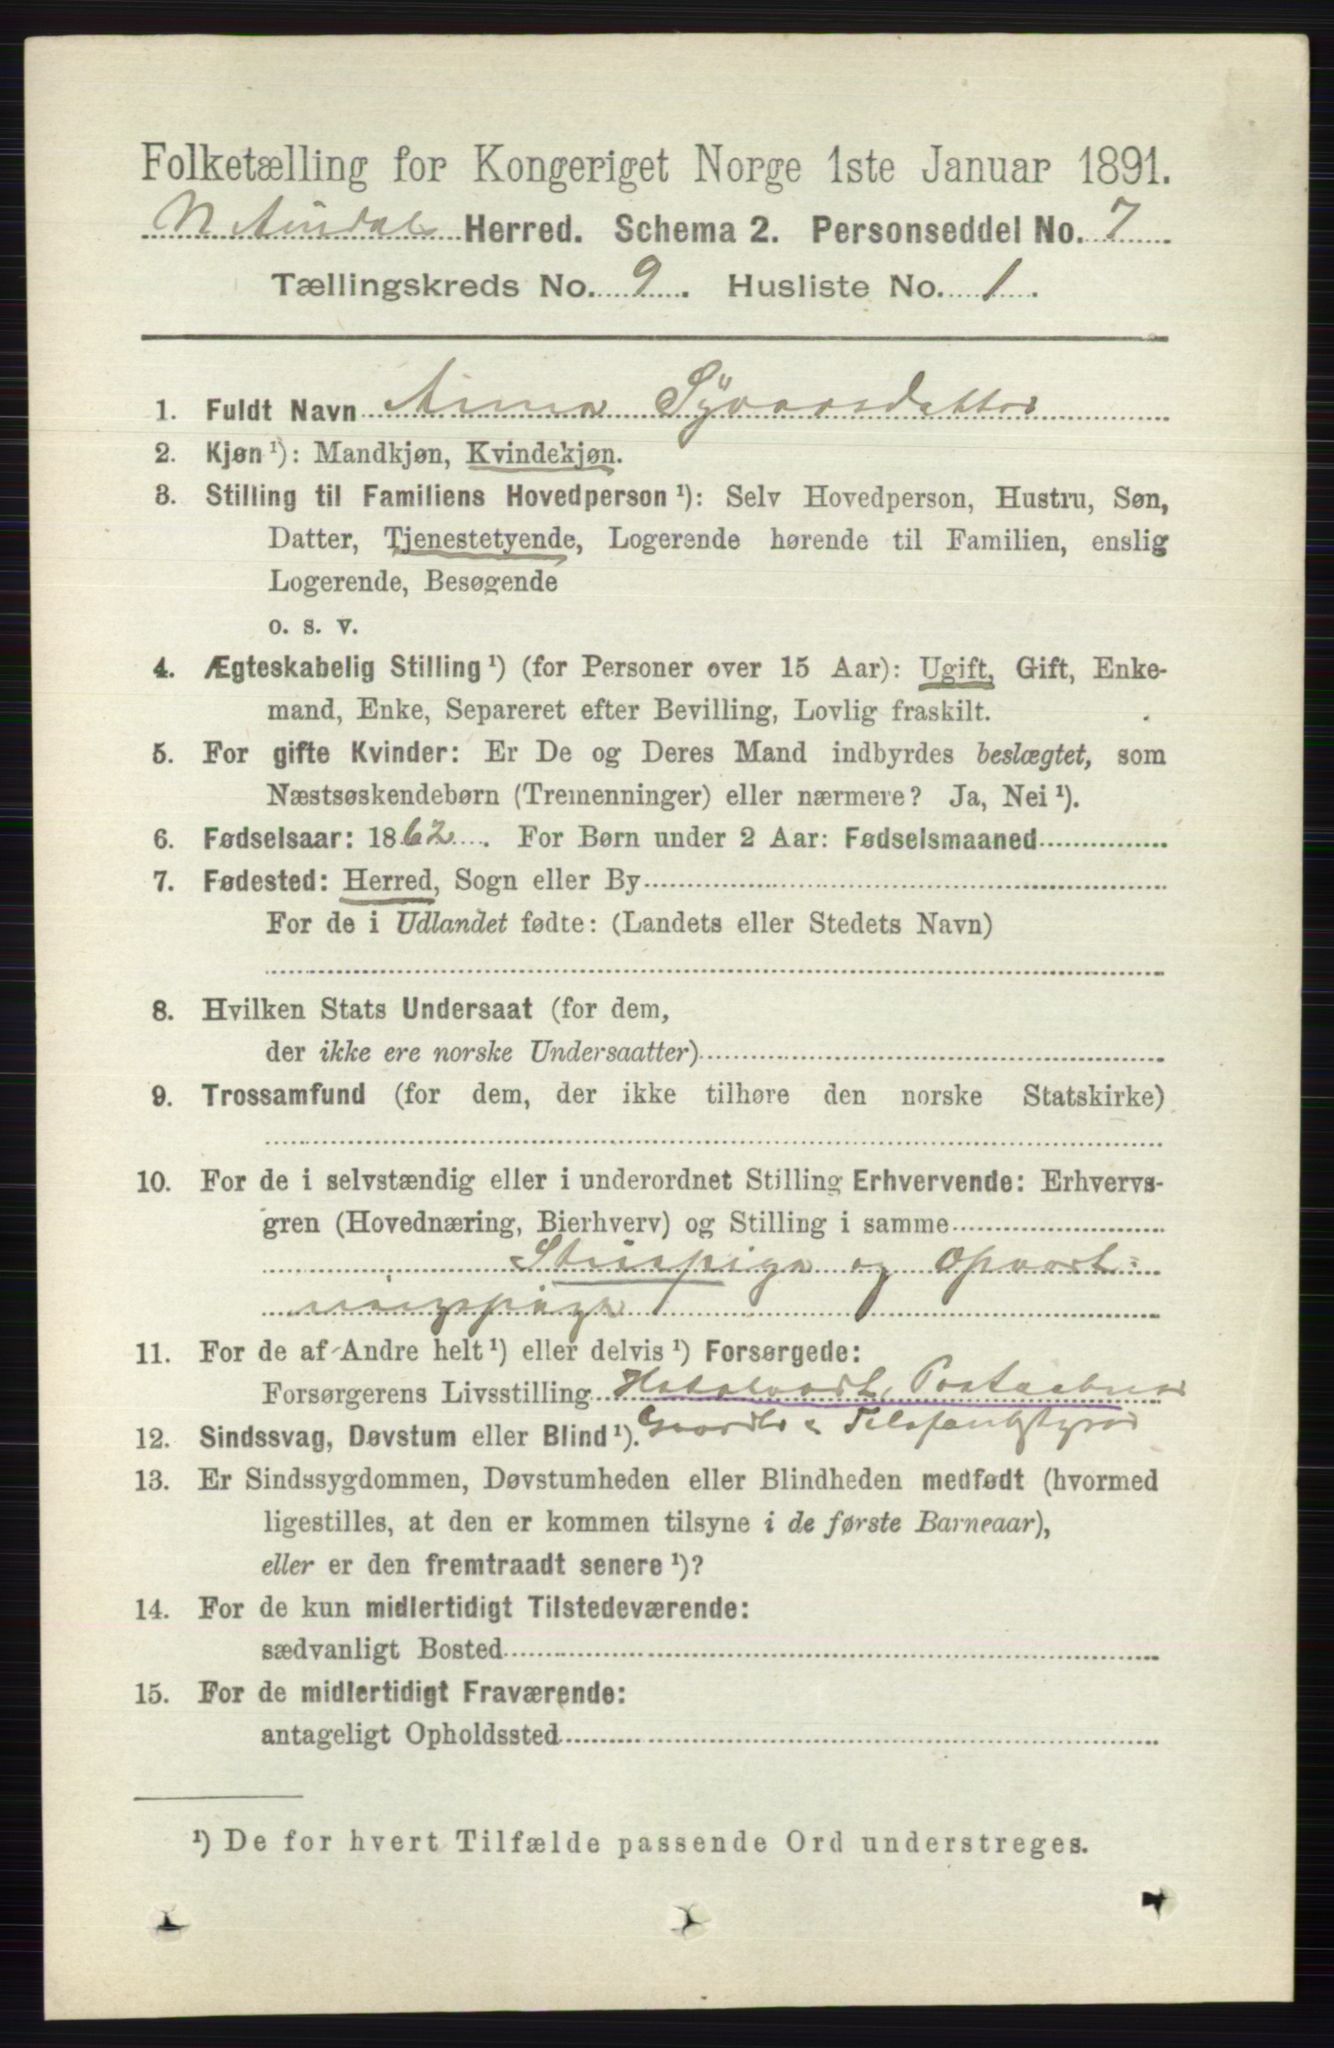 Folketælling for Kongeriget Norge 1ste Januar 1891.
N. Aurdal Herred. Schema 2. Personseddel No. 7
Tællingskreds No. 9. Husliste No. 1.
1. Fuldt Navn Anna Syversdatter
2. Kjøn ¹): Mandkjøn, Kvindekjøn.
3. Stilling til Familiens Hovedperson ¹): Selv Hovedperson, Hustru, Søn,
Datter, Tjenestetyende, Logerende hørende til Familien, enslig
Logerende, Besøgende
o. s. v.
4. Ægteskabelig Stilling ¹) (for Personer over 15 Aar): Ugift, Gift, Enke-
mand, Enke, Separeret efter Bevilling, Lovlig fraskilt.
5. For gifte Kvinder: Er De og Deres Mand indbyrdes beslægtet, som
Næstsøskendebørn (Tremenninger) eller nærmere? Ja, Nei ¹).
6. Fødselsaar: 1862. For Børn under 2 Aar: Fødselsmaaned
7. Fødested: Herred, Sogn eller By
For de i Udlandet fødte: (Landets eller Stedets Navn)
8. Hvilken Stats Undersaat (for dem,
der ikke ere norske Undersaatter)
9. Trossamfund (for dem, der ikke tilhøre den norske Statskirke)
10. For de i selvstændig eller i underordnet Stilling Erhvervende: Erhvervs-
gren (Hovednæring, Bierhverv) og Stilling i samme
Stuepige og Opvart-
ningspige
11. For de af Andre helt ¹) eller delvis ¹) Forsørgede:
Forsørgerens Livsstilling Hotelvært, Postaabner
12. Sindssvag, Døvstum eller Blind ¹). Gaardbr. Telefonbestyrer
13. Er Sindssygdommen, Døvstumheden eller Blindheden medfødt (hvormed
ligestilles, at den er kommen tilsyne i de første Barneaar),
eller er den fremtraadt senere ¹)?
14. For de kun midlertidigt Tilstedeværende:
sædvanligt Bosted
15. For de midlertidigt Fraværende:
antageligt Opholdssted
¹) De for hvert Tilfælde passende Ord understreges.